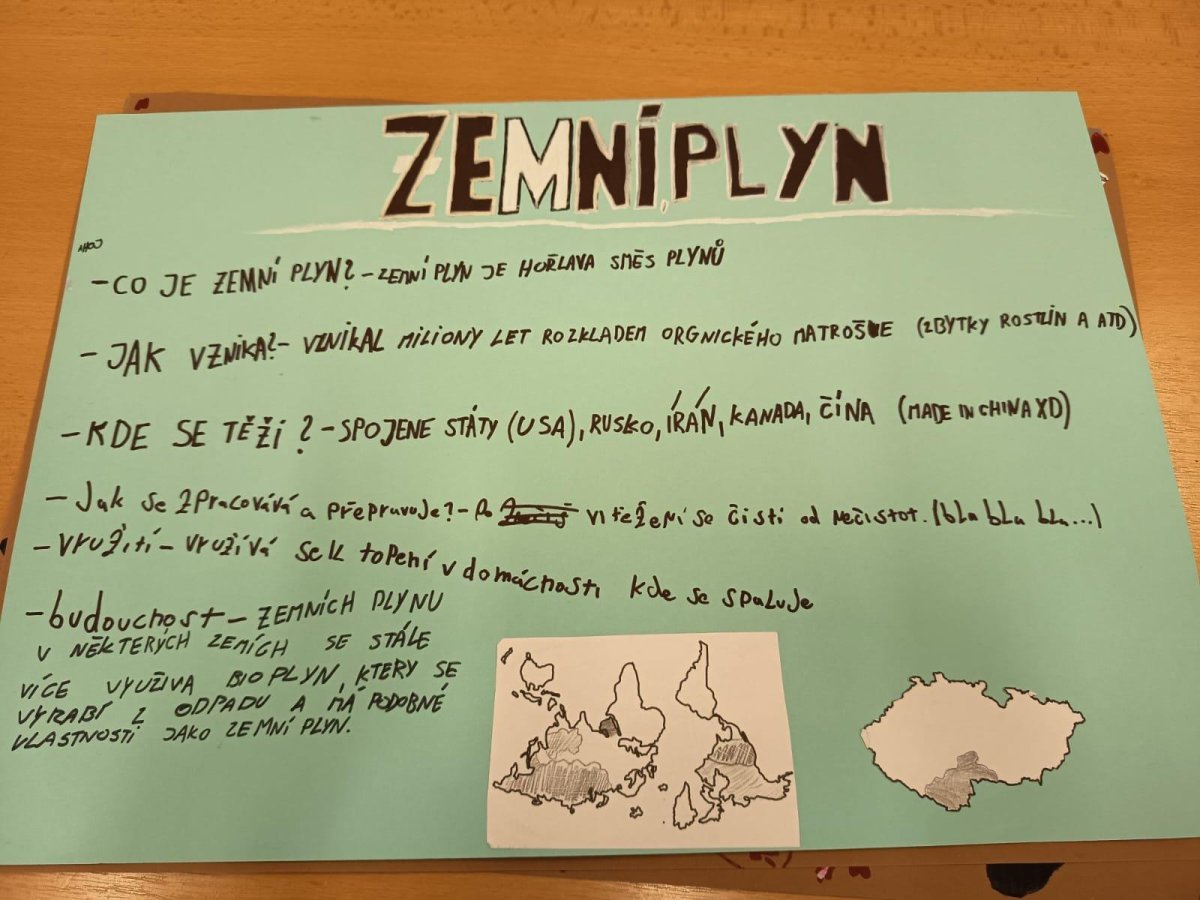 ZEMNÍ PLYN
AHOJ
- CO JE ZEMNÍ PLYN? - ZEMNÍ PLYN JE HOŘLAVA SMĚS PLYNŮ
- JAK VZNIKA? - VZNIKAL MILIONY LET ROZKLADEM ORGNICKÉHO MATROŠUE (ZBYTKY ROSTLIN A ATD)
- KDE SE TĚŽÍ? - SPOJENE STÁTY (USA), RUSKO, ÍRÁN, KANADA, ČÍNA (MADE IN CHINA XD)
- Jak se zpracovává a přepravuje? - Po vitěžení se čistí od nečistot. (bla bla bla...)
- VYUŽITÍ - VYUŽÍVÁ se k topení v domácnosti kde se spaluje
- budoucnost - ZEMNÍCH PLYNU
V NĚKTERÝCH ZEMÍCH SE STÁLE
VÍCE VYUŽIVA BIOPLYN, KTERY SE
VYRABÍ Z ODPADU A MÁ PODOBNÉ
VLASTNOSTI JAKO ZEMNÍ PLYN.